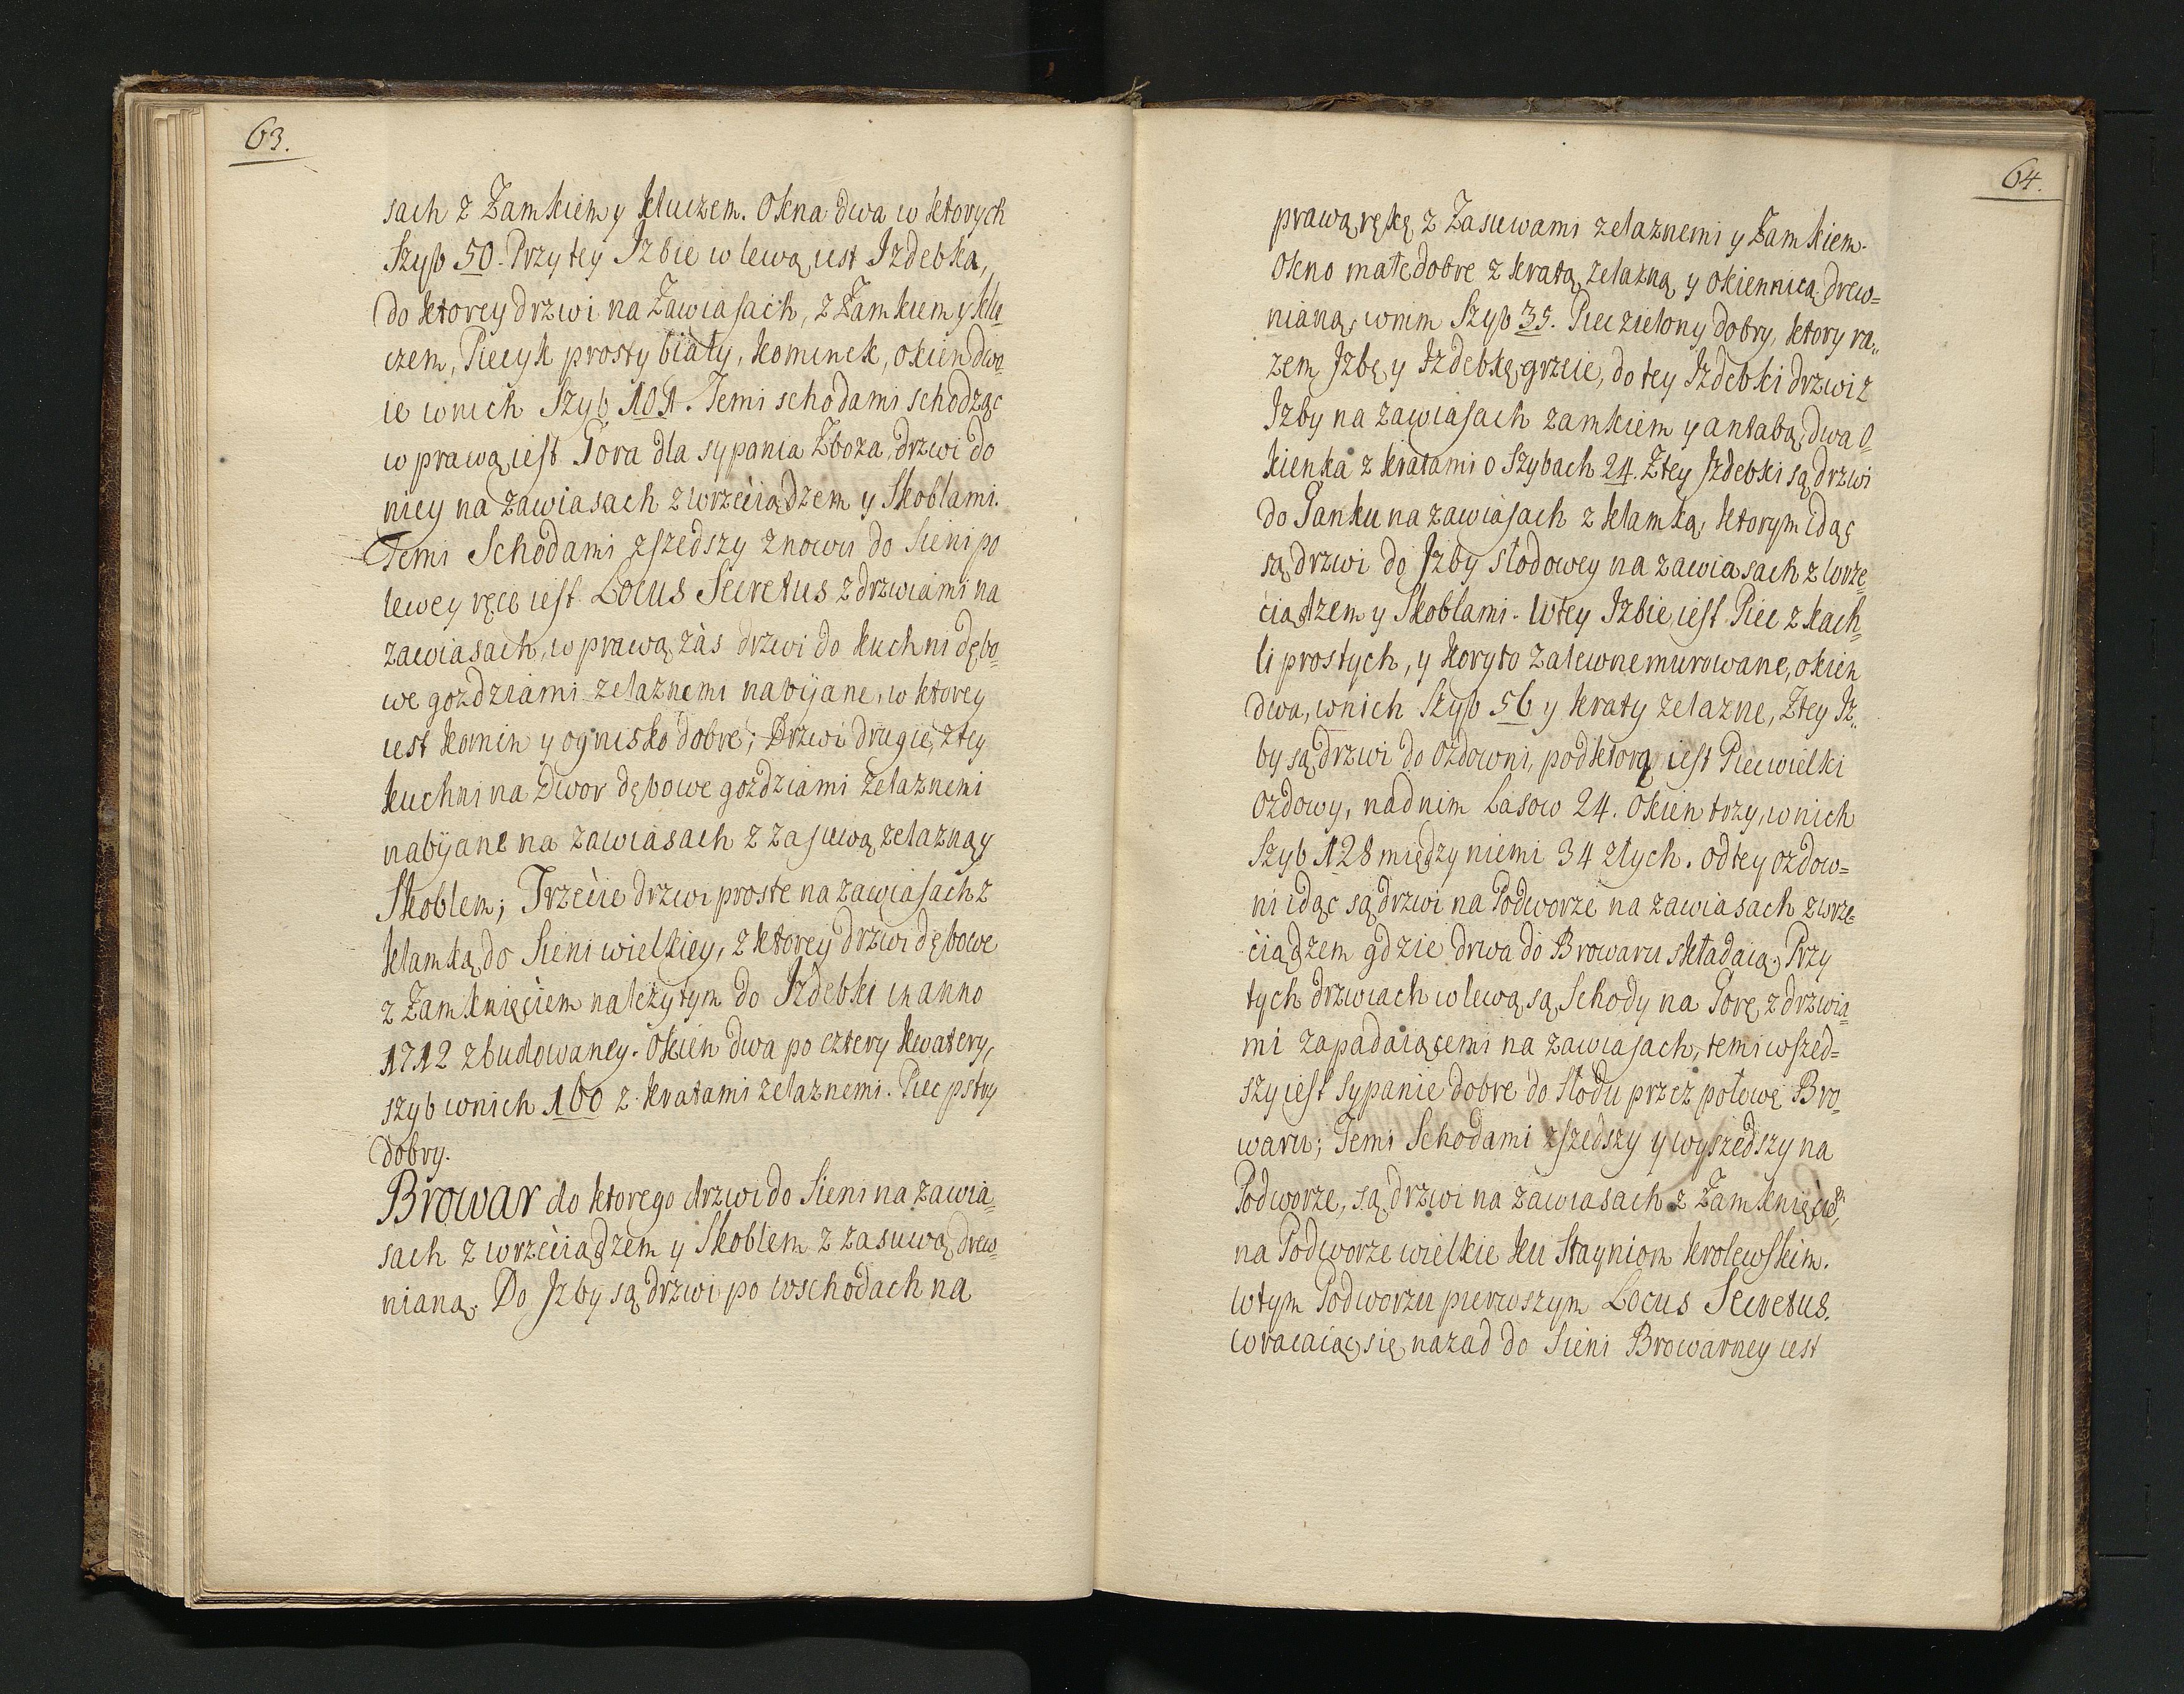 63.
sach z Zamkiem y kluczem. Okna dwa w ktorych
Szyb 50. Przy tey Jzbie w lewą iest Jzdebka,
do ktorey drzwi na Zawiasach, z Zamkiem y klu
czem, Piecyk prosty biały, kominek, okien dwo-
ie wnich Szyb 101. Temi schodami schodząc
w prawą iest Gora dla sypania Zboza, drzwi do
niey na zawiasach z wrzeciądzem y Skoblami.
Temi Schodami zszedszy znowu do Sieni po
lewey ręce iest Locus Secretus z drzwiami na
zawiasach, w prawą zàs drzwi do kuchni dębo-
we gozdziami zelaznemi nabijane, w ktorey
iest komin y ognisko dobre; Drzwi drugie, z tey
kuchni na Dwor dębowe gozdziami zelaznemi
nabijane na zawiasach z zasuwą zelazną y
Skoblem; Trzecie drzwi proste na zawiasach z
klamką do Sieni wielkiey, z ktorey drzwi dębowe
z Zamknięciem nalezytym do Jzdebki in anno
1712 zbudowaney. Okien dwa po cztery kwatery,
szyb wnich 160 z kratami zelaznemi. Piec pstry
dobry.
Browar do ktorego drzwi do Sieni na zawia-
sach z wrzeciądzem y Skoblem z zasuwą drew-
nianą. Do Jzby są drzwi po wschodach na
64.
prawą rękę z Zasuwami zelaznemi y Zamkiem.
Okno małe dobre z kratą zelazną y okiennicą drew=
nianą, wnim Szyb 35. Piec zielony dobry, ktory ra„
zem Jzbę y Jzdebkę grzeie, do tey Jzdebki drzwi z
Jzby na zawiasach zamkiem y antabą, dwa O-
kienka z kratami o Szybach 24. Ztey Jzdebki są drzwi
do Ganku na zawiasach z klamką, ktorym idąc
są drzwi do Jzby słodowey na zawiasach z wrze
ciądzem y Skoblami. Wtey Jzbie iest Piec z kach=
li prostych, y koryto zalewne murowane, okien
dwa, wnich Szyb 56 y kraty zelazne, Ztey Jz„
by są drzwi do Ozdowni, pod ktorą iest Piec wielki
Ozdowy, nad nim Lasow 24. Okien trzy, wnich
Szyb 128 między niemi 34 złych. Od tey ozdow=
ni idąc są drzwi na Podworze na zawiasach z wrze-
ciądzem gdzie drwa do Browaru składaią; Przy
tych drzwiach w lewą są Schody na Gorę z drzwia-
mi zapadaiącemi na zawiasach, temi wszed=
szy iest Sypanie dobre do Słodu przez połowę Bro-
waru; Temi Schodami zszedszy y wyszedszy na
Podworze, są drzwi na zawiasach z Zamknięciē,
na Podworze wielkie ku Stayniom krolewskim.
Wtym Podworzu pierwszym Locus Secretus.
Wracaiąc się nazad do Sieni Browarney iest